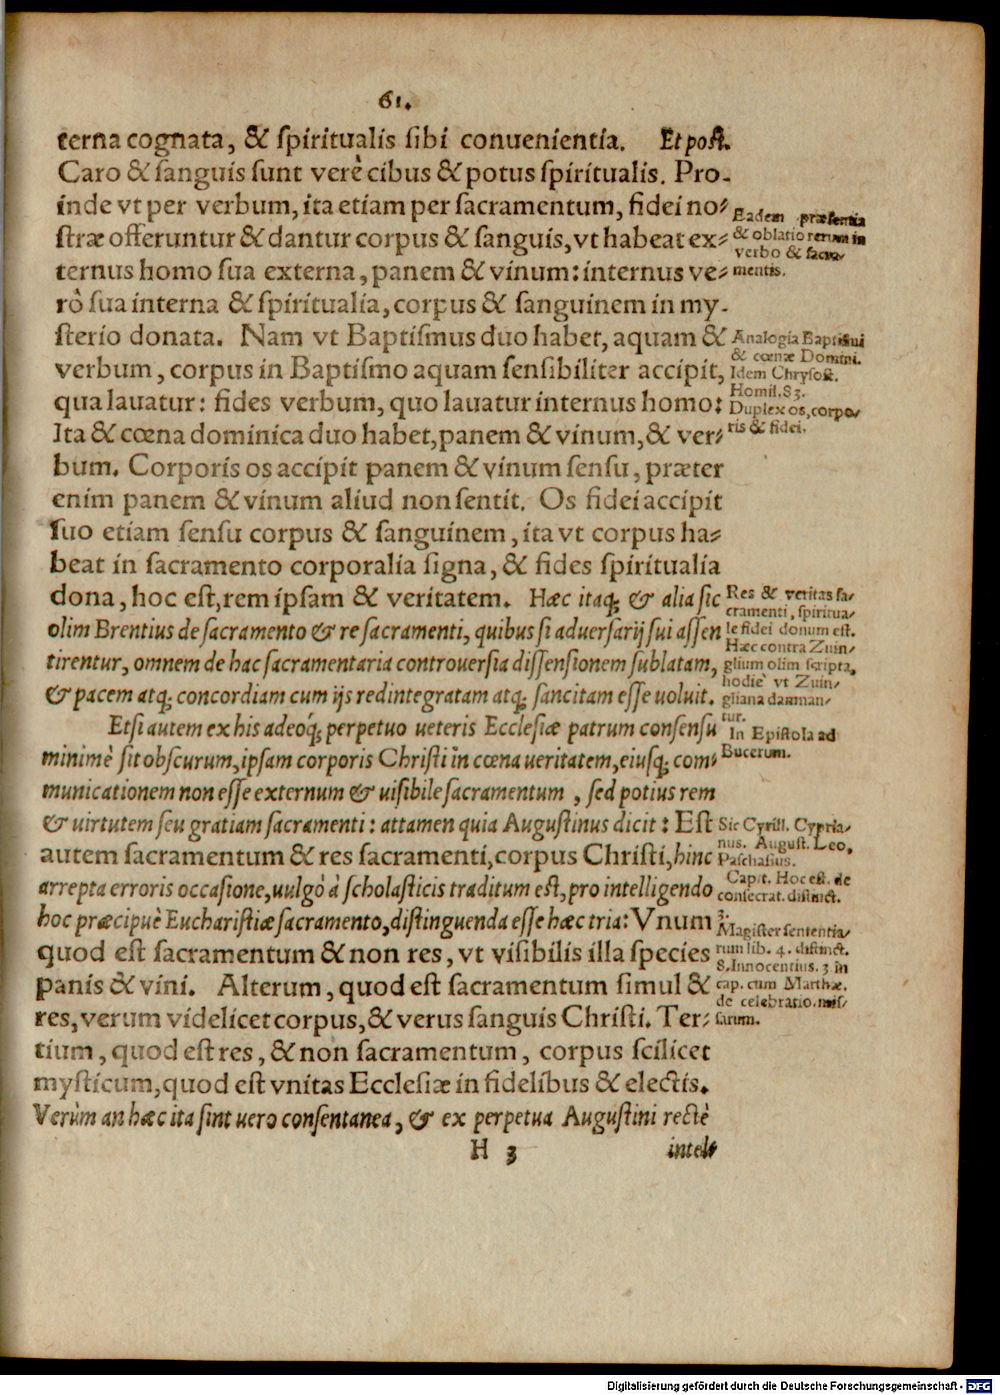 61.
terna cognata, & ſpiritualis ſibi conuenientia. Et poſt.
Caro & ſanguis ſunt verè cibus & potus ſpiritualis. Pro-
inde vt per verbum, ita etiam per ſacramentum, fidei no-
ſtræ offeruntur & dantur corpus & ſanguis, vt habeat ex-
ternus homo ſua externa, panem & vinum: internus ve-
rò ſua interna & ſpiritualia, corpus & ſanguinem in my-
ſterio donata. Nam vt Baptiſmus duo habet, aquam &
verbum, corpus in Baptiſmo aquam ſenſibiliter accipit,
qua lauatur: fides verbum, quo lauatur internus homo:
Ita & cœna dominica duo habet, panem & vinum, & ver-
bum. Corporis os accipit panem & vinum ſenſu, præter
enim panem & vinum aliud non ſentit. Os fidei accipit
ſuo etiam ſenſu corpus & ſanguinem, ita vt corpus ha-
beat in ſacramento corporalia ſigna, & fides ſpiritualia
dona, hoc eſt, rem ipſam & veritatem. Hæc itaq; & alia ſic
olim Brentius de ſacramento & re ſacramenti, quibus ſi aduerſarij ſui aſſen
tirentur, omnem de hac ſacramentaria controuerſia diſſenſionem ſublatam,
& pacem atq; concordiam cum ijs redintegratam atq; ſancitam eſſe uoluit.
Etſi autem ex his adeoq́; perpetuo ueteris Eccleſiæ patrum conſenſu
minimè ſit obſcurum, ipſam corporis Chriſti in cœna ueritatem, eiusq; com-
municationem non eſſe externum & uiſibile ſacramentum, ſed potius rem
& uirtutem ſeu gratiam ſacramenti: attamen quia Auguſtinus dicit: Eſt
autem ſacramentum & res ſacramenti, corpus Chriſti, hinc
arrepta erroris occaſione, uulgò à ſcholaſticis traditum eſt, pro intelligendo
hoc præcipuè Euchariſtiæ ſacramento, diſtinguenda eſſe hæc tria: Vnum
quod eſt ſacramentum & non res, vt viſibilis illa ſpecies
panis & vini. Alterum, quod eſt ſacramentum ſimul &
res, verum videlicet corpus, & verus ſanguis Chriſti. Ter-
tium, quod eſt res, & non ſacramentum, corpus ſcilicet
myſticum, quod eſt vnitas Eccleſiæ in fidelibus & electis.
Verùm an hæc ita ſint uero conſentanea, & ex perpetua Auguſtini rectè
H 3 intel-
Eadem præſentia
& oblatio rerum in
verbo & ſacra-
mentis.
Analogia Baptiſmi
& cœnæ Domini.
Idem Chryſoſt.
Homil. 83.
Duplex os, corpo-
ris & fidei.
Res & veritas ſa-
cramenti, ſpiritua-
le fidei donum eſt.
Hæc contra Zuin-
glium olim ſcripta,
hodiè vt Zuin-
gliana damnan-
tur.
In Epiſtola ad
Bucerum.
Sic Cyrill. Cypria-
nus. Auguſt. Leo,
Paſchaſius.
Capit. Hoc eſt. de
conſecrat. diſtinct.
2.
Magiſter ſententia-
rum lib. 4. diſtinct.
8. Innocentius. 3. in
cap. cum Marthæ.
de celebratio. miſ-
ſarum.
Digitalisierung gefördert durch die Deutsche Forschungsgemeinschaft - DFG